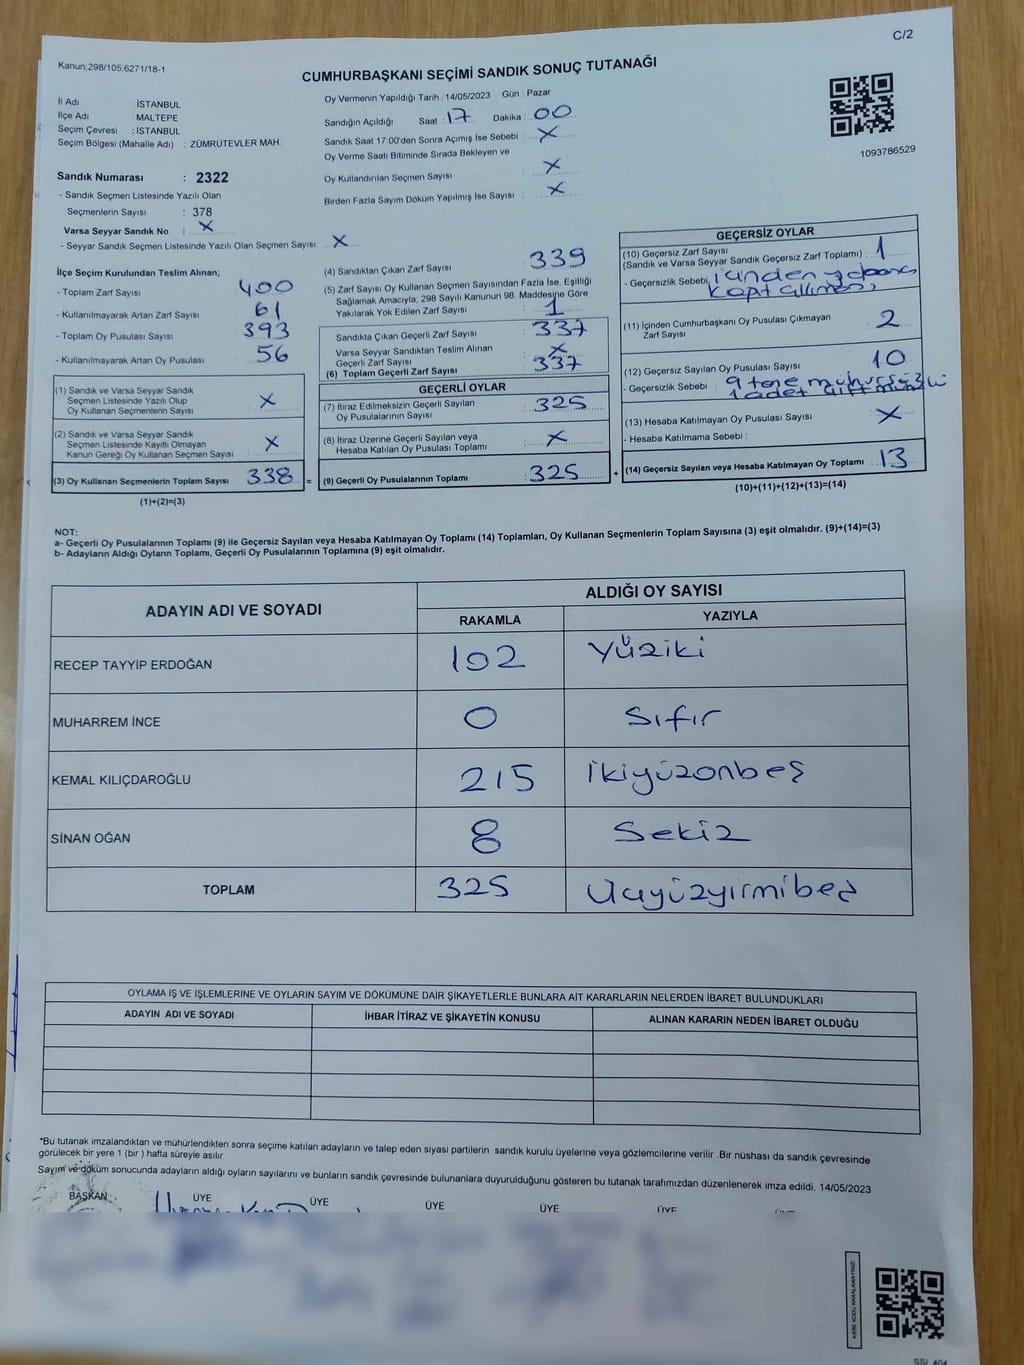 C/2
Kanun;298/105;6271/18-1
CUMHURBAŞKANI SEÇİMİ SANDIK SONUÇ TUTANAĞI
İl Adı : İSTANBUL
İlçe Adı MALTEPE
Seçim Çevresi : İSTANBUL
Seçim Bölgesi (Mahalle Adı) : ZÜMRÜTEVLER MAH.
Oy Vermenin Yapıldığı Tarih : 14/05/2023 Gün : Pazar
Sandığın Açıldığı Saat : 17 Dakika : 00
Sandık Saat 17:00'den Sonra Açımış İse Sebebi : X
Oy Verme Saati Bitiminde Sırada Bekleyen ve
Oy Kullandırılan Seçmen Sayısı : X
Birden Fazla Sayım Döküm Yapılmış İse Sayısı : X
1093786529
Sandık Numarası : 2322
- Sandık Seçmen Listesinde Yazılı Olan
Seçmenlerin Sayısı : 378
Varsa Seyyar Sandık No : X
- Seyyar Sandık Seçmen Listesinde Yazılı Olan Seçmen Sayısı: X
İlçe Seçim Kurulundan Teslim Alınan;
- Toplam Zarf Sayısı 400
- Kullanılmayarak Artan Zarf Sayısı 61
- Toplam Oy Pusulası Sayısı 393
- Kullanılmayarak Artan Oy Pusulası 56
(1) Sandık ve Varsa Seyyar Sandık
Seçmen Listesinde Yazılı Olup
Oy Kullanan Seçmenlerin Sayısı X
(2) Sandık ve Varsa Seyyar Sandık
Seçmen Listesinde Kayıtlı Olmayan
Kanun Gereği Oy Kullanan Seçmen Sayısı X
(3) Oy Kullanan Seçmenlerin Toplam Sayısı 338 =
(1)+(2)=(3)
(4) Sandıktan Çıkan Zarf Sayısı : 339
(5) Zarf Sayısı Oy Kullanan Seçmen Sayısından Fazla İse, Eşitliği
Sağlamak Amacıyla, 298 Sayılı Kanunun 98. Maddesine Göre
Yakılarak Yok Edilen Zarf Sayısı : 1
Sandıkta Çıkan Geçerli Zarf Sayısı : 337
Varsa Seyyar Sandıktan Teslim Alınan
Geçerli Zarf Sayısı : X
(6) Toplam Geçerli Zarf Sayısı : 337
GEÇERLİ OYLAR
(7) İtiraz Edilmeksizin Geçerli Sayılan
Oy Pusulalarının Sayısı : 325
(8) İtiraz Üzerine Geçerli Sayılan veya
Hesaba Katılan Oy Pusulası Toplamı : X
(9) Geçerli Oy Pusulalarının Toplamı : 325 +
GEÇERSİZ OYLAR
(10) Geçersiz Zarf Sayısı
(Sandık ve Varsa Seyyar Sandık Geçersiz Zarf Toplamı) : 1
- Geçersizlik Sebebi :
(11) İçinden Cumhurbaşkanı Oy Pusulası Çıkmayan
Zarf Sayısı : 2
(12) Geçersiz Sayılan Oy Pusulası Sayısı : 10
- Geçersizlik Sebebi : 9 tane mühürsüz
1 adet
(13) Hesaba Katılmayan Oy Pusulası Sayısı : X
- Hesaba Katılmama Sebebi :
(14) Geçersiz Sayılan veya Hesaba Katılmayan Oy Toplamı : 13
(10)+(11)+(12)+(13)=(14)
NOT:
a- Geçerli Oy Pusulalarının Toplamı (9) ile Geçersiz Sayılan veya Hesaba Katılmayan Oy Toplamı (14) Toplamları, Oy Kullanan Seçmenlerin Toplam Sayısına (3) eşit olmalıdır. (9)+(14)=(3)
b- Adayların Aldığı Oyların Toplamı, Geçerli Oy Pusulalarının Toplamına (9) eşit olmalıdır.
ADAYIN ADI VE SOYADI ALDIĞI OY SAYISI
RAKAMLA YAZIYLA
RECEP TAYYİP ERDOĞAN 102 Yüziki
MUHARREM İNCE 0 Sıfır
KEMAL KILIÇDAROĞLU 215 İkiyüzonbeş
SİNAN OĞAN 8 Sekiz
TOPLAM 325 Üçyüzyirmibeş
OYLAMA İŞ VE İŞLEMLERİNE VE OYLARIN SAYIM VE DÖKÜMÜNE DAİR ŞİKAYETLERLE BUNLARA AİT KARARLARIN NELERDEN İBARET BULUNDUKLARI
ADAYIN ADI VE SOYADI İHBAR İTİRAZ VE ŞİKAYETİN KONUSU ALINAN KARARIN NEDEN İBARET OLDUĞU
*Bu tutanak imzalandıktan ve mühürlendikten sonra seçime katılan adayların ve talep eden siyasi partilerin sandık kurulu üyelerine veya gözlemcilerine verilir. Bir nüshası da sandık çevresinde
görülecek bir yere 1 (bir ) hafta süreyle asılır.
Sayım ve döküm sonucunda adayların aldığı oyların sayılarını ve bunların sandık çevresinde bulunanlara duyurulduğunu gösteren bu tutanak tarafımızdan düzenlenerek imza edildi. 14/05/2023
BAŞKAN ÜYE ÜYE ÜYE ÜYE ÜYE
KARE KODU KARALAMAYINIZ!